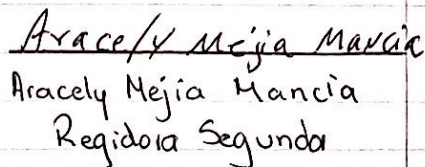 Aracely Mejia Mancia
Aracely Mejía Mancìa
Regidora Segunda